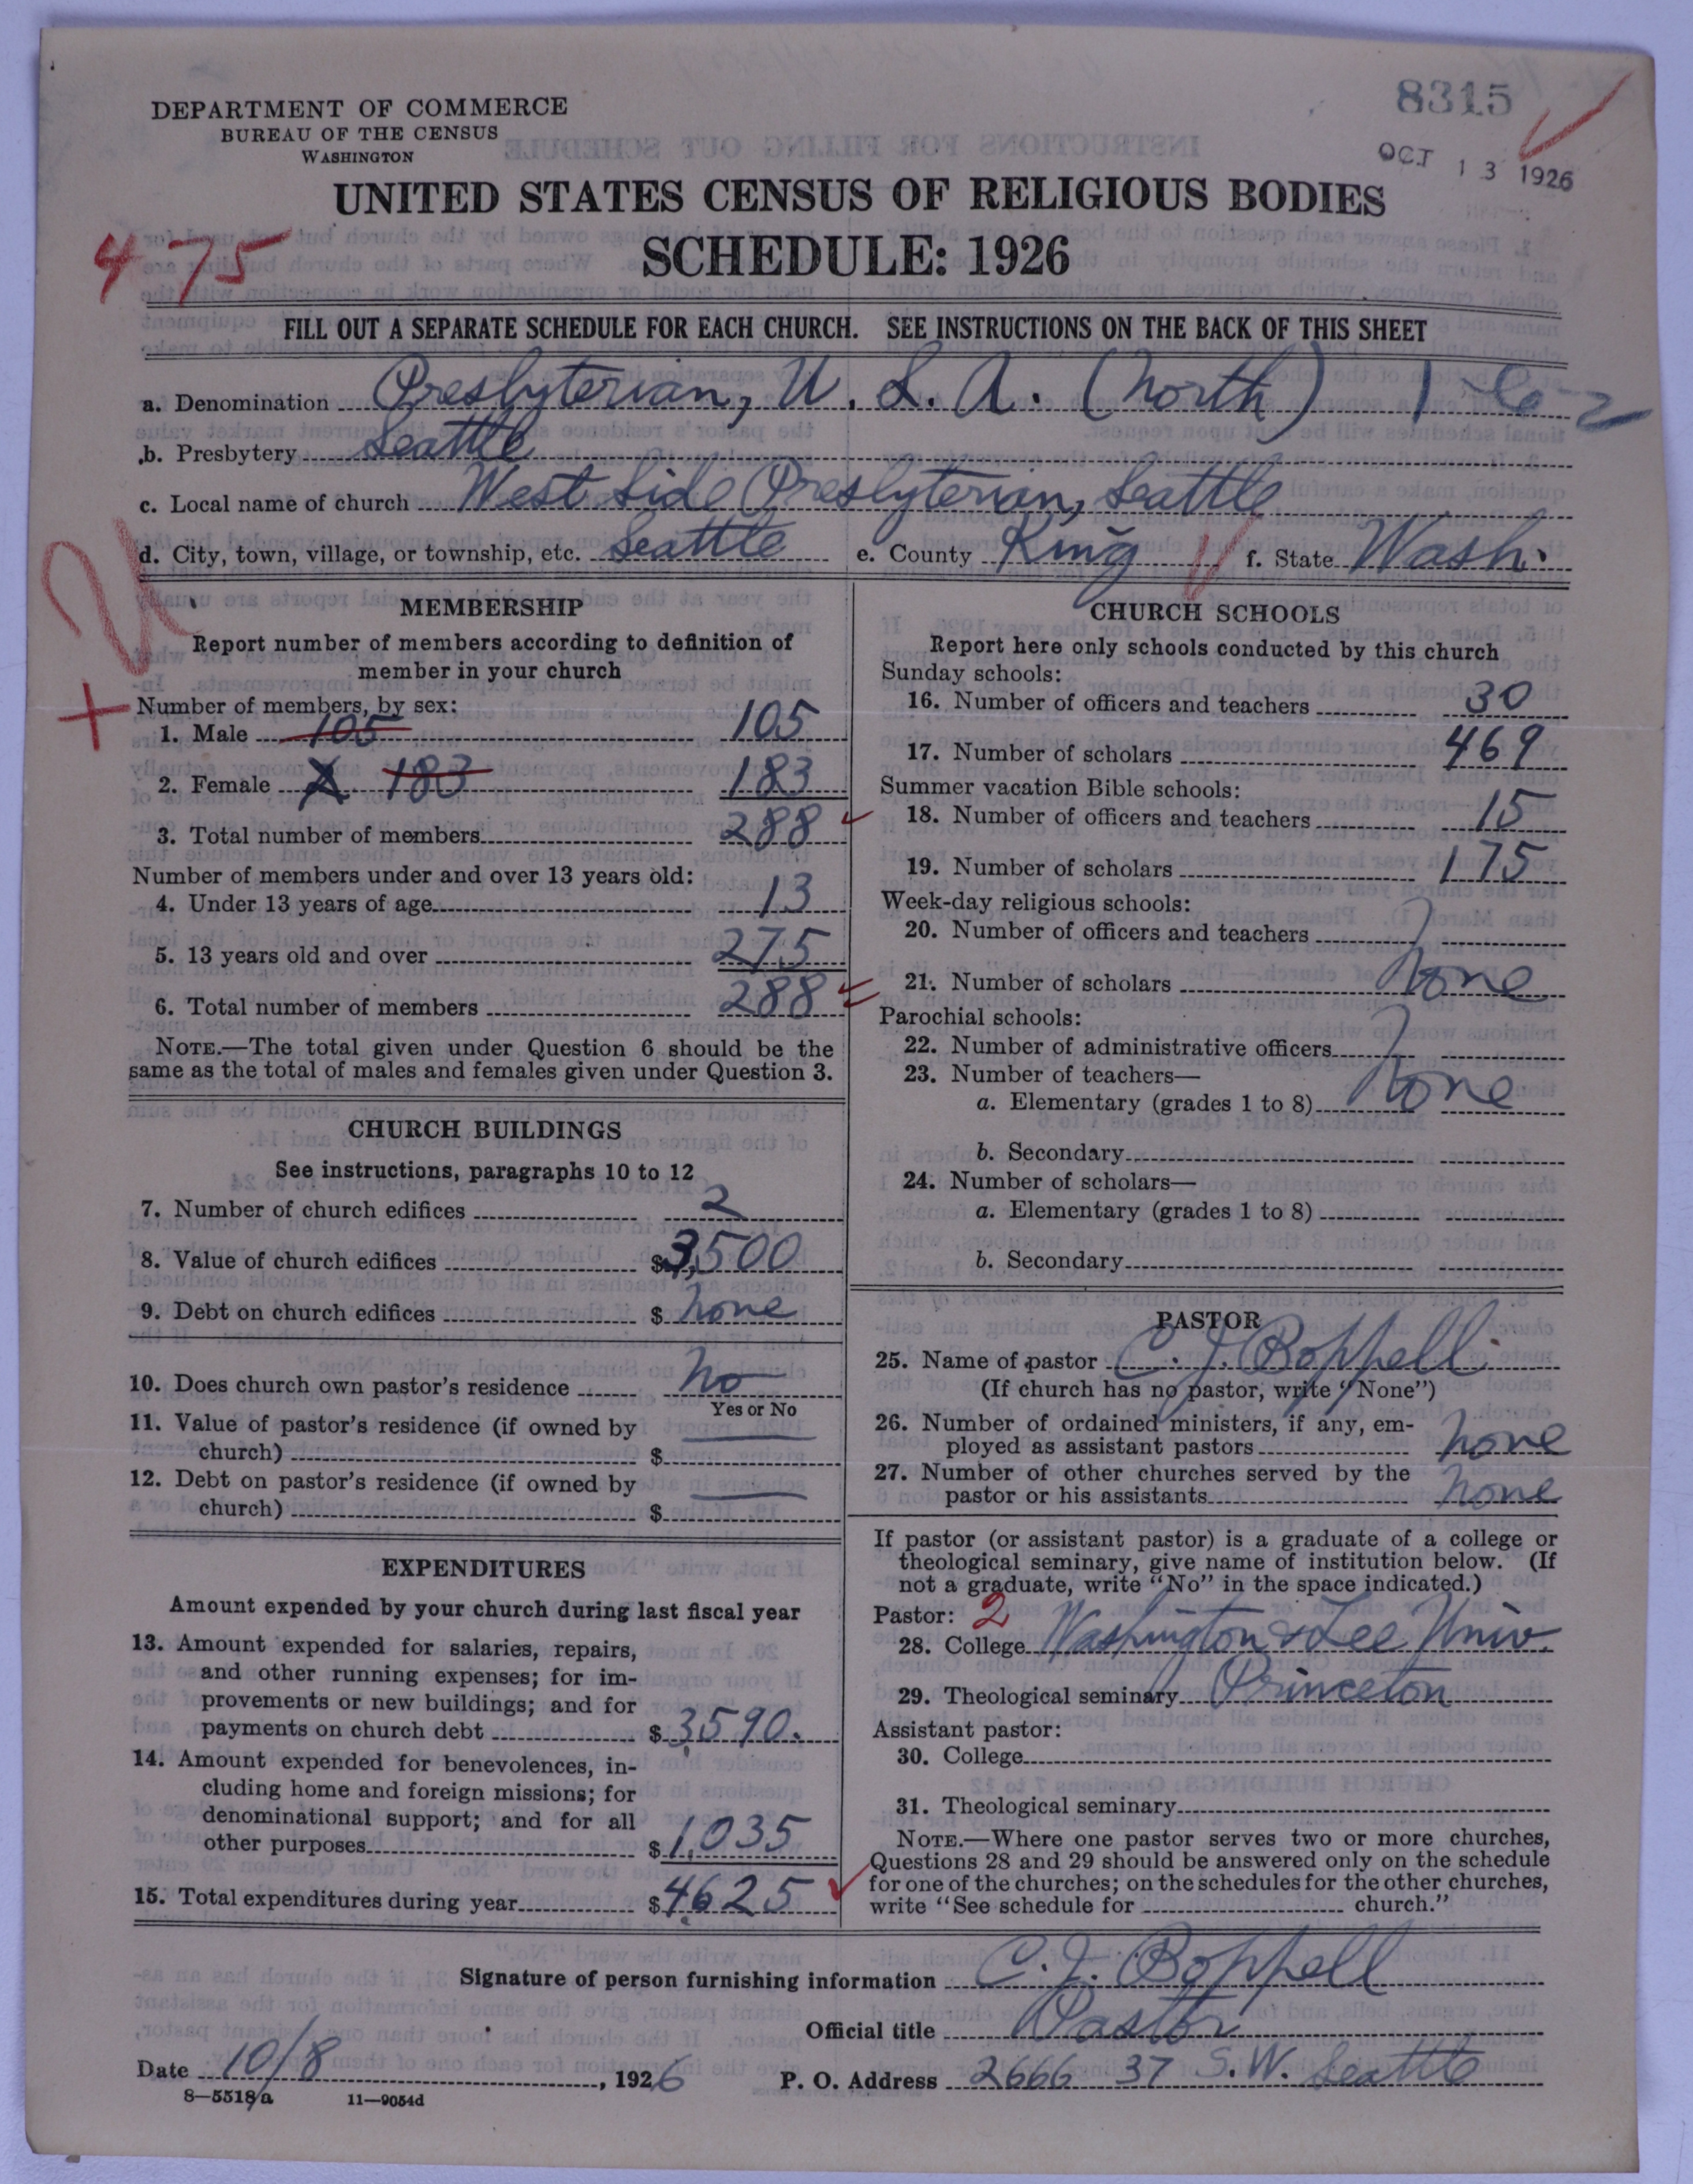 DEPARTMENT OF COMMERCE
BUREAU OF THE CENSUS
WASHINGTON
8315
OCT 13 1926
UNITED STATES CENSUS OF RELIGIOUS BODIES
475
SCHEDULE: 1926
FILL OUT A SEPARATE SCHEDULE FOR EACH CHURCH. SEE INSTRUCTIONS ON THE BACK OF THIS SHEET
a. Denomination Presbyterian, U. S. A. (North) 1-6-2
b. Presbytery Seattle
c. Local name of church West Side Presbyterian, Seattle
d. City, town, village, or township, etc. Seattle e. County King f. State Wash.
MEMBERSHIP
Report number of members according to definition of
member in your church
Number of members, by sex:
1. Male 105 105
2. Female 183 183
3. Total number of members 288
Number of members under and over 13 years old:
4. Under 13 years of age 13
5. 13 years old and over 275
6. Total number of members 288
NOTE.—The total given under Question 6 should be the
same as the total of males and females given under Question 3.
CHURCH BUILDINGS
See instructions, paragraphs 10 to 12
7. Number of church edifices 2
8. Value of church edifices $ 3,500
9. Debt on church edifices $ none
10. Does church own pastor's residence no
Yes or No
11. Value of pastor's residence (if owned by
church) $
12. Debt on pastor's residence (if owned by
church) $
EXPENDITURES
Amount expended by your church during last fiscal year
13. Amount expended for salaries, repairs,
and other running expenses; for im-
provements or new buildings; and for
payments on church debt $ 3,590.
14. Amount expended for benevolences, in-
cluding home and foreign missions; for
denominational support; and for all
other purposes $ 1,035
15. Total expenditures during year $ 4,625
CHURCH SCHOOLS
Report here only schools conducted by this church
Sunday schools:
16. Number of officers and teachers 30
17. Number of scholars 469
Summer vacation Bible schools:
18. Number of officers and teachers 15
19. Number of scholars 175
Week-day religious schools:
20. Number of officers and teachers
21. Number of scholars None
Parochial schools:
22. Number of administrative officers
23. Number of teachers—
a. Elementary (grades 1 to 8) None
b. Secondary
24. Number of scholars—
a. Elementary (grades 1 to 8)
b. Secondary
PASTOR
25. Name of pastor C. J. Boppell
(If church has no pastor, write "None")
26. Number of ordained ministers, if any, em-
ployed as assistant pastors none
27. Number of other churches served by the
pastor or his assistants none
If pastor (or assistant pastor) is a graduate of a college or
theological seminary, give name of institution below. (If
not a graduate, write "No" in the space indicated.)
Pastor: 2
28. College Washington & Lee Univ.
29. Theological seminary Princeton
Assistant pastor:
30. College
31. Theological seminary
NOTE.—Where one pastor serves two or more churches,
Questions 28 and 29 should be answered only on the schedule
for one of the churches; on the schedules for the other churches,
write "See schedule for church."
Signature of person furnishing information C. J. Boppell
Official title Pastor
Date 10/8, 1926 P. O. Address 2666 37 S.W. Seattle
8—5518a 11—9054d